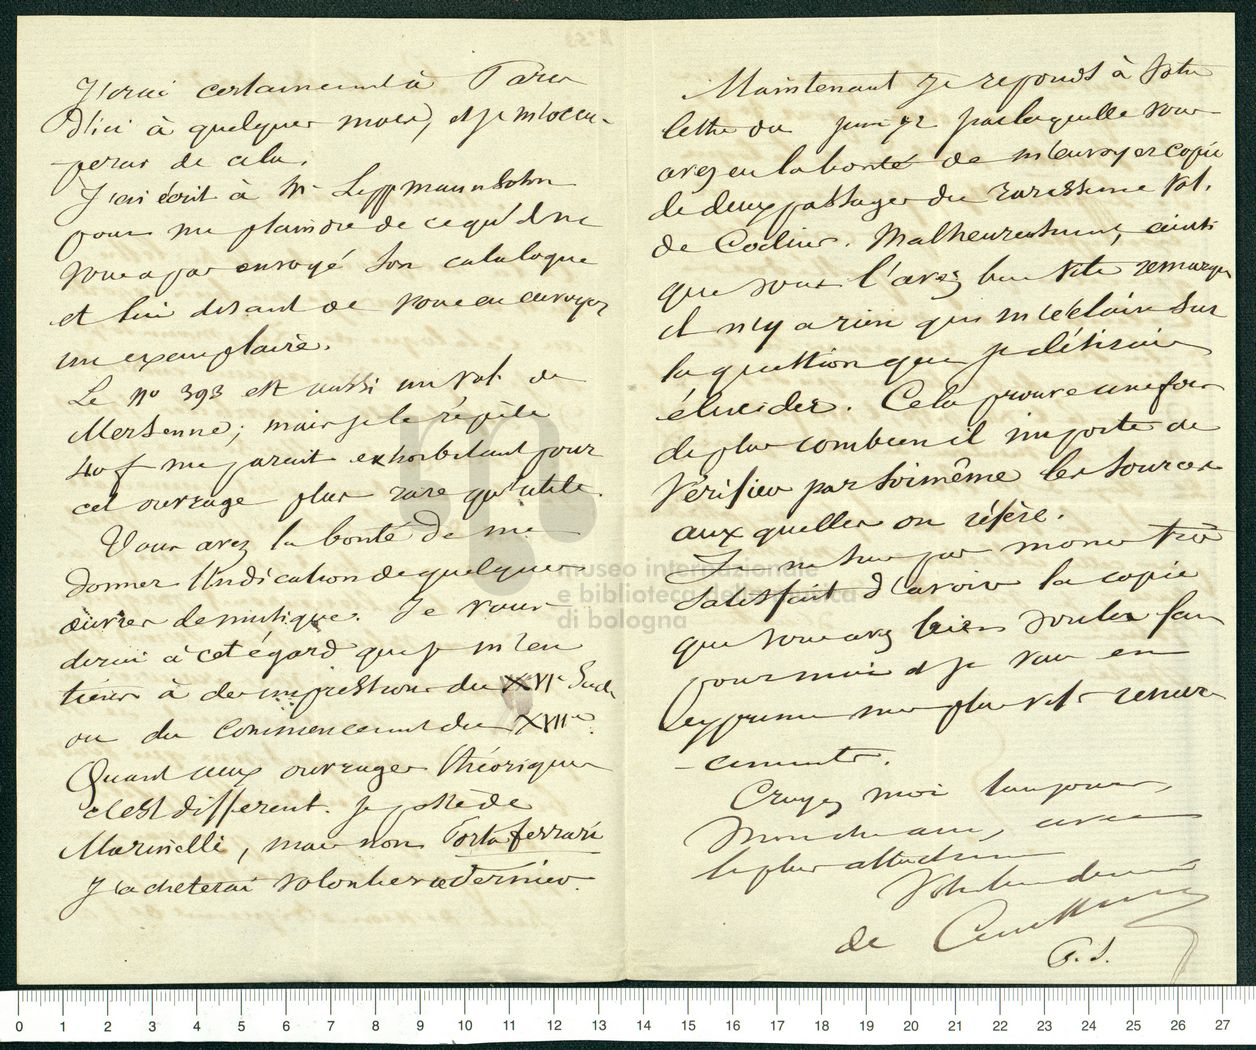 J'irai certainement à Paris
d'ici à quelques mois, et je m'occu-
-perai de cela.
J'ai écrit à Mr Leppmannsohn
pour me plaindre de ce qu'il ne
vous a pas envoyé son catalogue
et lui disant de vous en envoyer
un exemplaire.
Le no 393 est aussi un vol. de
Mersenne; mais je le répète
40 f me parait exhorbitant pour
cet ouvrage plus rare qu'utile.
Vous avez la bonté de me
donner l'indication de quelques
œuvres de musique. Je vous
dirai à cet égard que je m'en
tiens à des impressions du XVIe Siecle
ou du commencement du XVIIe.
Quant aux ouvrages théoriques
c'est différent. Je possède
Marinelli, mais non Porta ferrari
J'acheterai volontiers ce dernier.
Maintenant je reponds à votre
lettre du par laquelle vous
avez eu la bonté de m'envoyer copie
de deux passages du rarissime vol.
de Coclius. Malheureusement, ainsi
que vous l'avez bien vite remarqué
il n'y a rien qui m'éclaire sur
la question que je désirais
élucider. Cela prouve une fois
de plus combien il importe de
vérifier par soi même les sources
aux quelles on réfère.
Je ne suis pas moins très
satisfait d'avoir la copie
que vous avez bien voulu faire
pour moi et je vous en
exprime mes plus vifs remer-
-ciments.
Croyez moi toujours,
Monsieur, avec
le plus
Votre
de Coussemaker
T. S.
museo internazionale
e biblioteca della musica
di bologna
0 1 2 3 4 5 6 7 8 9 10 11 12 13 14 15 16 17 18 19 20 21 22 23 24 25 26 27